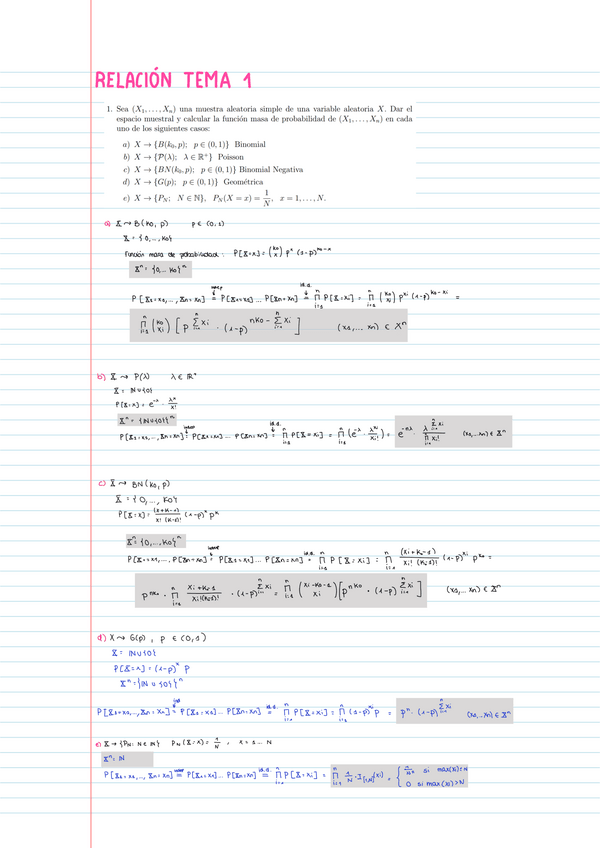 RELACIÓN TEMA 1
1. Sea (X₁, . . . , Xₙ) una muestra aleatoria simple de una variable aleatoria X. Dar el
espacio muestral y calcular la función masa de probabilidad de (X₁, . . . , Xₙ) en cada
uno de los siguientes casos:
a) X → {B(k₀, p); p ∈ (0, 1)} Binomial
b) X → {P(λ); λ ∈ ℝ⁺} Poisson
c) X → {BN(k₀, p); p ∈ (0, 1)} Binomial Negativa
d) X → {G(p); p ∈ (0, 1)} Geométrica
e) X → {P_N; N ∈ ℕ}, P_N(X = x) = 1/N, x = 1, . . . , N.
a) X ⤳ B(k₀, p) p ∈ (0,1)
X = {0,..., k₀}
Función masa de probabilidad: P[X=x] = (k₀ x) pˣ (1-p)^(k₀-x)
Xⁿ = {0,... k₀}ⁿ
indep i.d.
P[X₁=x₁,..., Xₙ=xₙ] = P[X=x₁]... P[X=xₙ] = ∏ᵢ₌₁ⁿ P[X=xᵢ] = ∏ᵢ₌₁ⁿ (k₀ xᵢ) p^xᵢ (1-p)^(k₀-xᵢ) =
∏ᵢ₌₁ⁿ (k₀ xᵢ) [p^(∑ᵢ₌₁ⁿ xᵢ) · (1-p)^(nk₀ - ∑ᵢ₌₁ⁿ xᵢ)] (x₁,... xₙ) ∈ Xⁿ
b) X ⤳ P(λ) λ ∈ ℝ⁺
X = ℕ∪{0}
P[X=x] = e^(-λ) · λˣ/x!
Xⁿ = {ℕ∪{0}}ⁿ
P[X₁=x₁,..., Xₙ=xₙ] = P[X=x₁]... P[X=xₙ] = ∏ᵢ₌₁ⁿ P[X=xᵢ] = ∏ᵢ₌₁ⁿ (e^(-λ) · λ^xᵢ/xᵢ!) = e^(-nλ) · λ^(∑ᵢ₌₁ⁿ xᵢ)/∏ᵢ₌₁ⁿ xᵢ! (x₁,..xₙ) ∈ Xⁿ
c) X ⤳ BN(k₀, p)
X = {0,..., k₀}
P[X=x] = (x+k-1)/x!(k-1)! (1-p)ˣ pᵏ
Xⁿ = {0,..., k₀}ⁿ
P[X₁=x₁,..., Xₙ=xₙ] = P[X=x₁]... P[X=xₙ] = ∏ᵢ₌₁ⁿ P[X=xᵢ] = ∏ᵢ₌₁ⁿ (xᵢ+k₀-1)/xᵢ!(k₀-1)! (1-p)^xᵢ p^k₀ =
p^nk₀ · ∏ᵢ₌₁ⁿ xᵢ+k₀-1/xᵢ!(k₀-1)! · (1-p)^(∑ᵢ₌₁ⁿ xᵢ) = ∏ᵢ₌₁ⁿ (xᵢ-k₀-1 xᵢ) [p^nk₀ · (1-p)^(∑ᵢ₌₁ⁿ xᵢ)] (x₁,... xₙ) ∈ Xⁿ
d) X ⤳ G(p), p ∈ (0,1)
X = ℕ∪{0}
P[X=x] = (1-p)ˣ p
Xⁿ = {ℕ∪{0}}ⁿ
P[X₁=x₁,.., Xₙ=xₙ] = P[X=x₁]... P[X=xₙ] = ∏ᵢ₌₁ⁿ P[X=xᵢ] = ∏ᵢ₌₁ⁿ (1-p)ˣ p = pⁿ · (1-p)^(∑ᵢ₌₁ⁿ xᵢ) (x₁,..xₙ) ∈ Xⁿ
e) X → {P_N: N ∈ ℕ} P_N(X=x) = 1/N, x = 1... N
Xⁿ: ℕ
P[X₁=x₁,.., Xₙ=xₙ] = P[X=x₁]... P[X=xₙ] = ∏ᵢ₌₁ⁿ P[X=xᵢ] = ∏ᵢ₌₁ⁿ 1/N · I(xᵢ) = { 1/Nⁿ si max(xᵢ)≤N
0 si max(xᵢ)>N